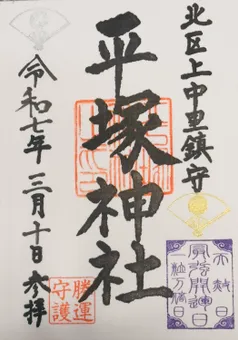 北区上中里鎮守
平塚神社
令和七年三月十日参拝
勝運
守護
大熱日
一粒万倍日